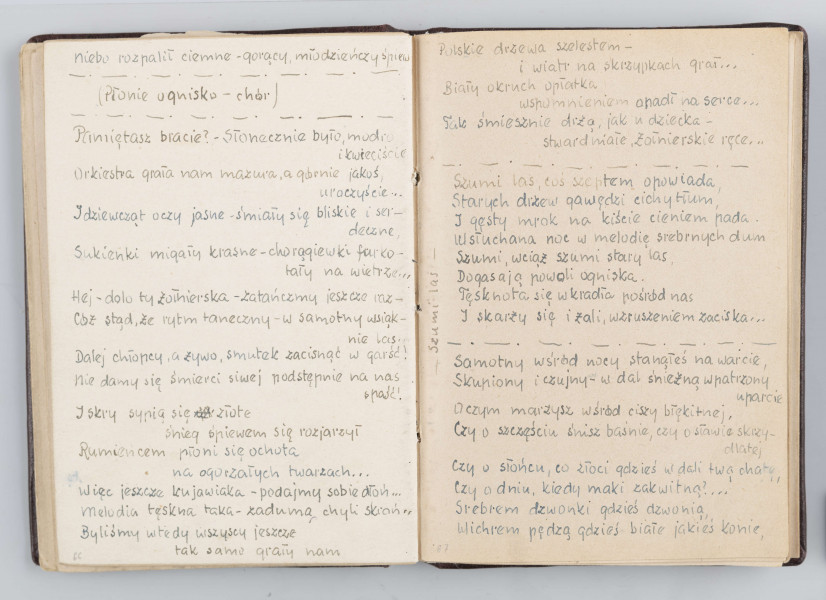 niebo rozpalił ciemne – gorący, młodzieńczy śpiew
(Płonie ognisko – chór)
Pamiętasz bracie? – Słonecznie było, modro
i kwieciście
Orkiestra grała nam mazura, a górnie jakoś,
uroczyście...
I dziewcząt oczy jasne – śmiały się bliskie i ser-
deczne,
Sukienki migały krasne – chorągiewki furko-
tały na wietrze...
Hej – dolo ty żołnierska – zatańczmy jeszcze raz –
Cóż stąd, że rytm taneczny – w samotny wsiąk-
nie las.
Dalej chłopcy, a żywo, smutek zacisnąć w garść!
Nie damy się śmierci siwej podstępnie na nas
spaść!
Iskry sypią się złote
śnieg śpiewem się rozjarzył
Rumieńcem płoni się ochota
na ogorzałych twarzach...
Więc jeszcze kujawiaka – podajmy sobie dłoń...
Melodia tęskna taka – zadumą, chyli skroń...
Byliśmy wtedy wszyscy jeszcze
tak samo grały nam
Polskie drzewa szelestem –
i wiatr na skrzypkach grał...
Biały okruch opłatka
wspomnieniem opadł na serce...
Tak śmiesznie drżą, jak u dziecka –
stwardniałe, żołnierskie ręce...
– Szumi las –
Szumi las, coś szeptem opowiada,
Starych drzew gawędzi cichy tłum,
I gęsty mrok na kiście cieniem pada.
Wsłuchana noc w melodię srebrnych dum
Szumi, wciąż szumi stary las,
Dogasają powoli ogniska.
Tęsknota się wkradła pośród nas
I skarży się i żali, wzruszeniem zaciska...
Samotny wśród nocy stanąłeś na warcie,
Skupiony i czujny – w dal śnieżną wpatrzony
uparcie
O czym marzysz wśród ciszy błękitnej,
Czy o szczęściu śnisz baśnie, czy o sławie skrzy-
dlatej
Czy o słońcu, co złoci gdzieś w dali twą chatę,
Czy o dniu, kiedy maki zakwitną?...
Srebrem dzwonki gdzieś dzwonią,
Wichrem pędzą gdzieś białe jakieś konie,